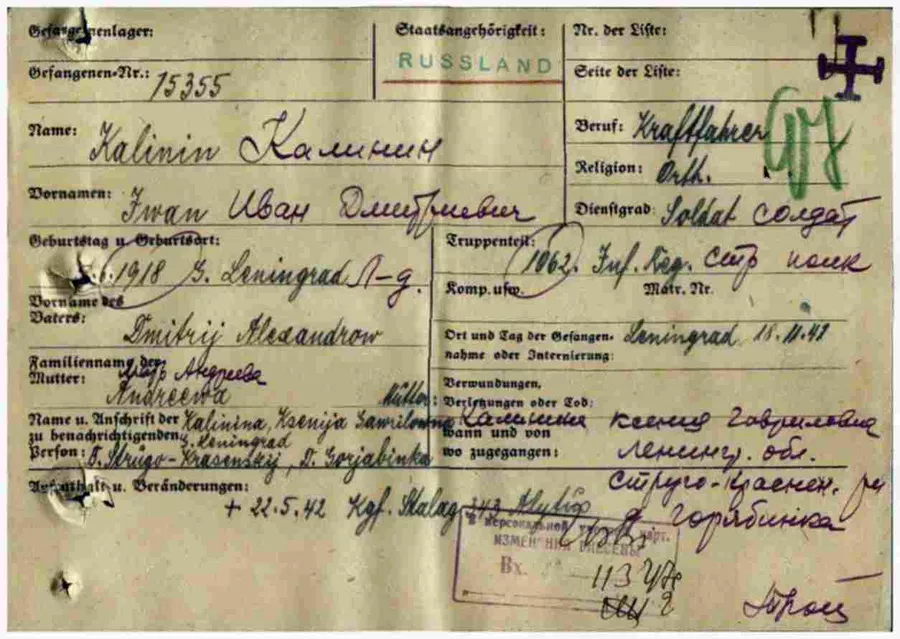 Gefangenenlager:
Gefangenen-Nr.: 15355
Staatsangehörigkeit:
RUSSLAND
Nr. der Liste:
Seite der Liste:
Name: Kalinin Калинин
Vornamen: Iwan Иван Дмитриевич
Beruf: Kraftfahrer
Religion: Orth.
Dienstgrad: Soldat солдат
Geburtstag u Geburtsort:
6.1918 G. Leningrad Л-д.
Vorname des
Vaters: Dmitrij Alexandrow
Familienname der
Mutter: Andreewa Андреева
Truppenteil: 1062. Inf. Reg. стр полк
Komp. usw. Matr. Nr.
Ort und Tag der Gefangen- Leningrad 18.11.41
nahme oder Internierung:
Verwundungen,
Verletzungen oder Tod:
wann und von
wo zugegangen:
Name u. Anschrift der Kalinina, Ksenija Gawrilowna Mutter:
zu benachrichtigenden G. Leningrad
Person: Strugo-Krasenskij, D. Gorjabinka
Калинина Ксения Гавриловна
Ленингр. обл.
Струго-Краснен.
д Горябинка
Aufenthalt u. Veränderungen:
+ 22.5.42 Kgf. Stalag 343 Alytus
В персональной
ИЗМЕНЕНИЯ ВНЕСЕНЫ
Вх.